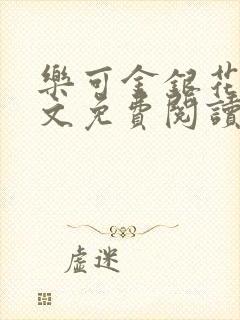 樂可金銀花
文免費閱讀
虛迷